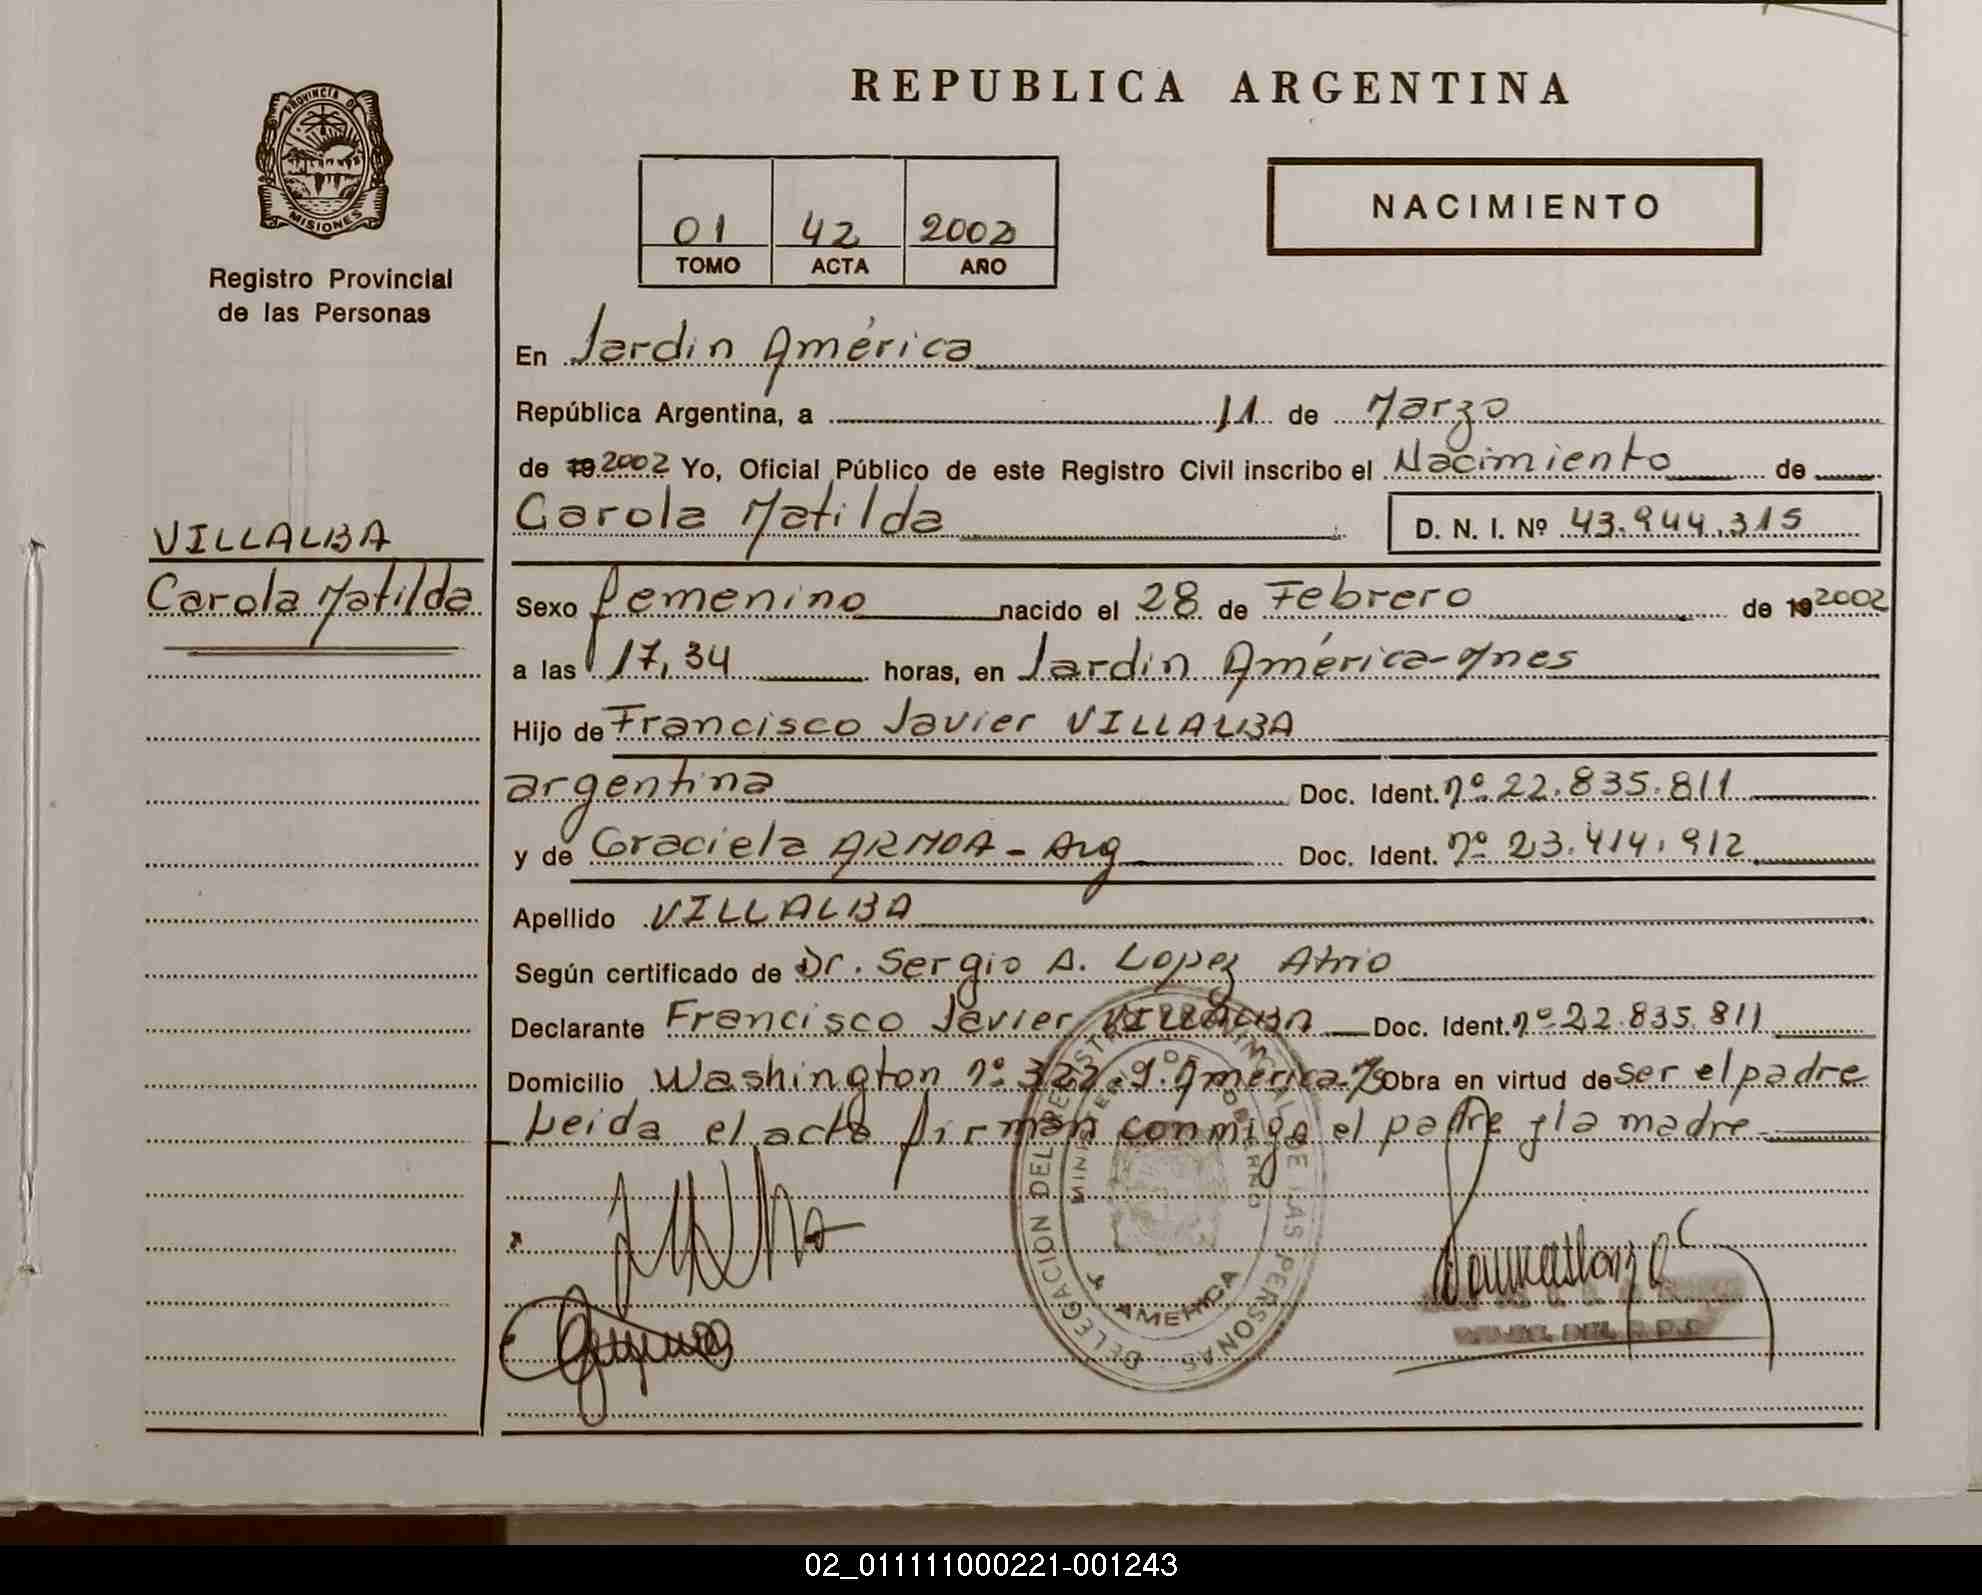 REPUBLICA ARGENTINA
PROVINCIA DE
MISIONES
Registro Provincial
de las Personas
01 42 2002
TOMO ACTA AÑO
NACIMIENTO
En Jardin América
República Argentina, a 11 de Marzo
de 19 2002 Yo, Oficial Público de este Registro Civil inscribo el Nacimiento de
Carola Matilda D. N. I. Nº 43.944.315
VILLALBA
Carola Matilda
Sexo femenino nacido el 28 de Febrero de 19 2002
a las 17,34 horas, en Jardin América-Mnes
Hijo de Francisco Javier VILLALBA
argentina Doc. Ident. nº 22.835.811
y de Graciela ARMOA - Arg Doc. Ident. nº 23.414.912
Apellido VILLALBA
Según certificado de Dr. Sergio A. Lopez Atrio
Declarante Francisco Javier VILLALBA Doc. Ident. nº 22.835.811
Domicilio Washington nº 322 J. América Obra en virtud de ser el padre
Leida el acta firman conmigo el padre y la madre
DELEGACION DEL REGISTRO PROVINCIAL DE LAS PERSONAS
MINISTERIO DE GOBIERNO
AMERICA
02_011111000221-001243